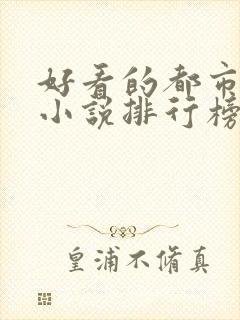 好看的都市
小说排行榜
皇浦不脩真